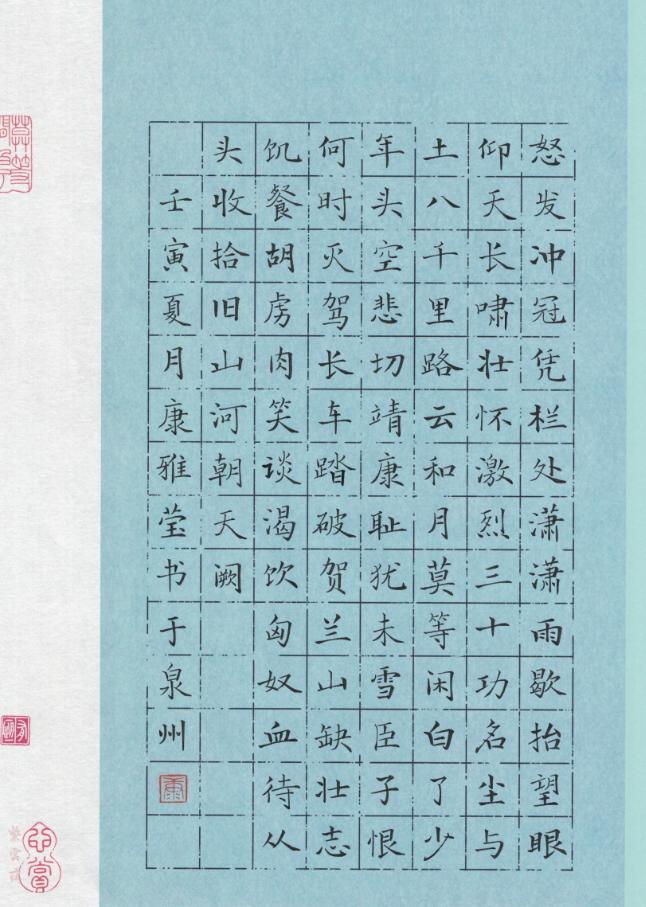 怒发冲冠凭栏处潇潇雨歇抬望眼
仰天长啸壮怀激烈三十功名尘与
土八千里路云和月莫等闲白了少
年头空悲切靖康耻犹未雪臣子恨
何时灭驾长车踏破贺兰山缺壮志
饥餐胡虏肉笑谈渴饮匈奴血待从
头收拾旧山河朝天阙
壬寅夏月康雅莹书于泉州
康